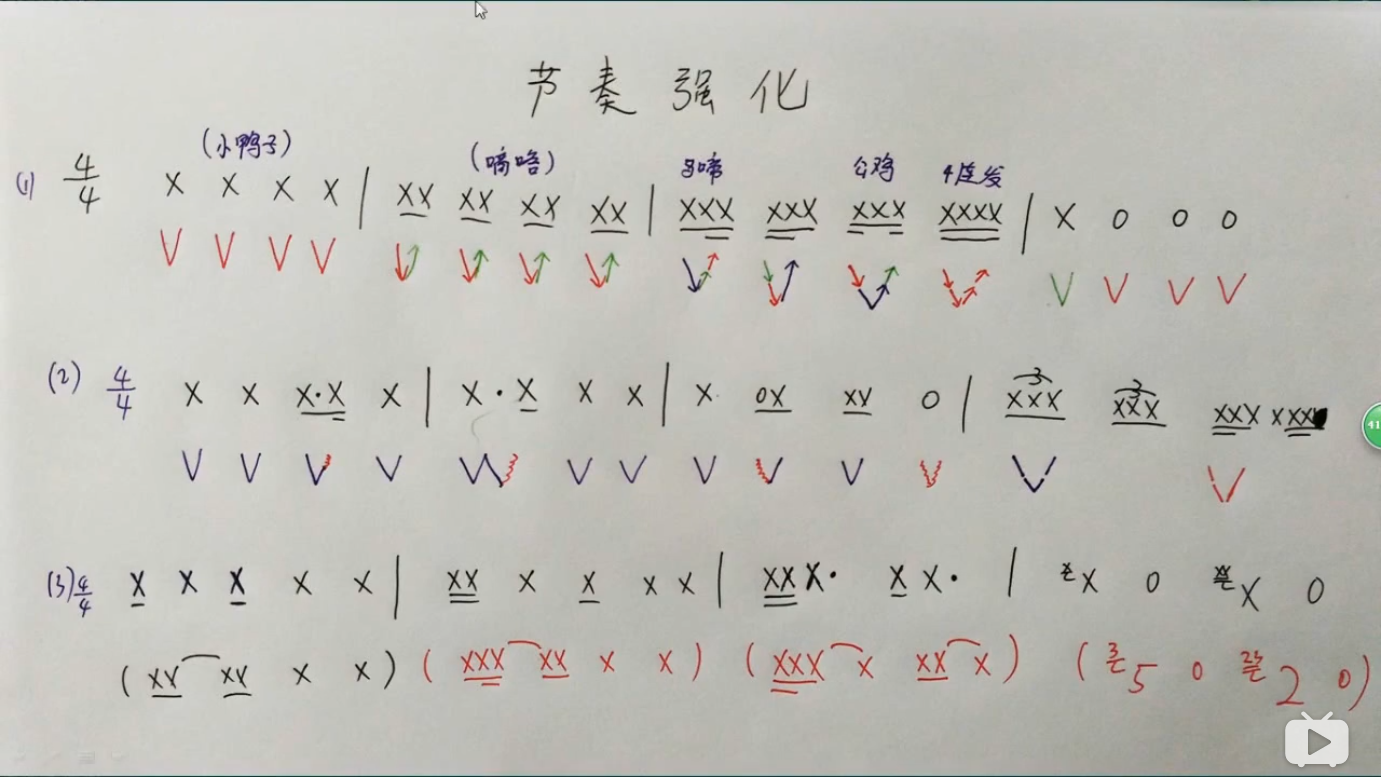 节奏强化
(小鸭子) (嘀嗒) 马啼 公鸡 4连发
(1) 4/4 X X X X | XX XX XX XX | XXX XXX XXX XXXX | X 0 0 0
V V V V V V V V
(2) 4/4 X X X·X X | X·X X X | X· 0X XX 0 | 3 XXX 3 XXX XXX XXX
V V V V V V V V V V V V V
(3) 4/4 X X X X X | XX X X X X | XXX· XX· | X 0 X 0
(XX XX X X) (XXX XX X X) (XXX X XX X) (5 0 23 2 0)
41